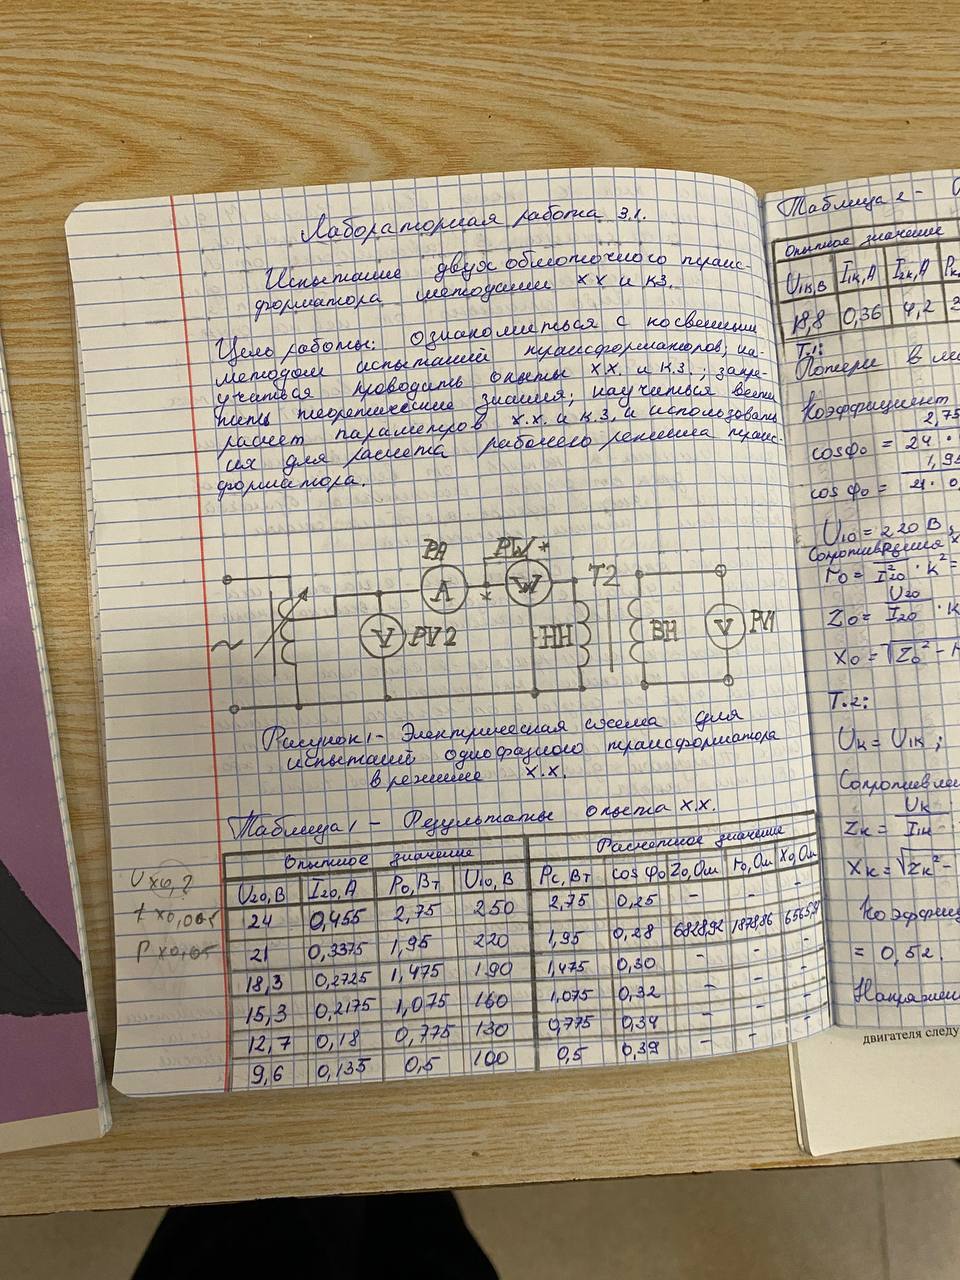 Лабораторная работа 3.1.
Испытание двухобмоточного транс-
форматора методами хх и кз.
Цель работы: ознакомиться с косвенным
методом испытаний трансформаторов; на-
учиться проводить опыты х.х. и к.з.; закре-
пить теоретические знания; научиться вести
расчет параметров х.х. и к.з. и использовать
их для расчета рабочего режима транс-
форматора.
PA PW*
A * W T2
~ V PV2 HH BH V PV1
Рисунок 1 - Электрическая схема для
испытаний однофазного трансформатора
в режиме х.х.
Таблица 1 - Результаты опыта х.х.
Опытное значение Расчетное значение
U20,В I20,А P0,Вт U10,В Pс,Вт cosφ0 Z0,Ом r0,Ом X0,Ом
24 0,455 2,75 250 2,75 0,25 - - -
21 0,3375 1,95 220 1,95 0,28 6828,92 1878,86
18,3 0,2725 1,475 190 1,475 0,30 - - -
15,3 0,2175 1,075 160 1,075 0,32 - - -
12,7 0,18 0,775 130 0,775 0,34 - - -
9,6 0,135 0,5 100 0,5 0,39 - - -
Таблица 2 -
Опытное значение
U1к,В I1к,А I2к,А Pк
18,8 0,36 4,2
Т.1:
Потери в
Коэффициент
2,75
cosφ0 = 24 ·
1,95
cosφ0 = 21 · 0,
U10 = 220 В;
Сопротивления
P0
r0 = I²20 · к² =
U20
Z0 = I20 · к
X0 = √Z0² -
Т.2:
Uк = U1к;
Сопротивлен
Uк
Zк = I1к
Xк = √Zк² -
Коэффиц
= 0,52.
Напряжен
двигателя следу